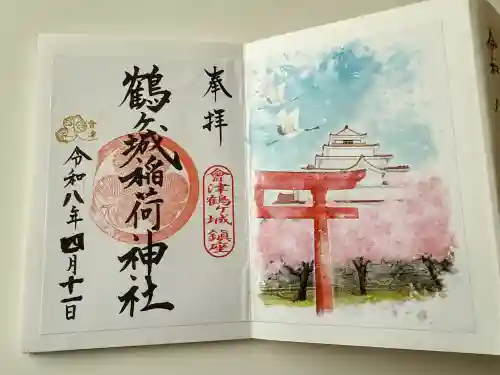 奉拝
會津鶴ヶ城鎮座
鶴ヶ城稲荷神社
會津
令和八年四月十一日